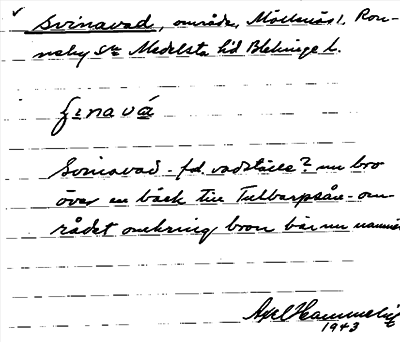 Svinavad, område, Möllenäs 1, Ron-
neby Sn Medelsta hd Blekinge l.
Svinavad - f.d. vadställe? nu bro
över en bäck till Tulbarpsån - om-
rådet omkring bron bär nu namnet
Axel Hammelin
1943